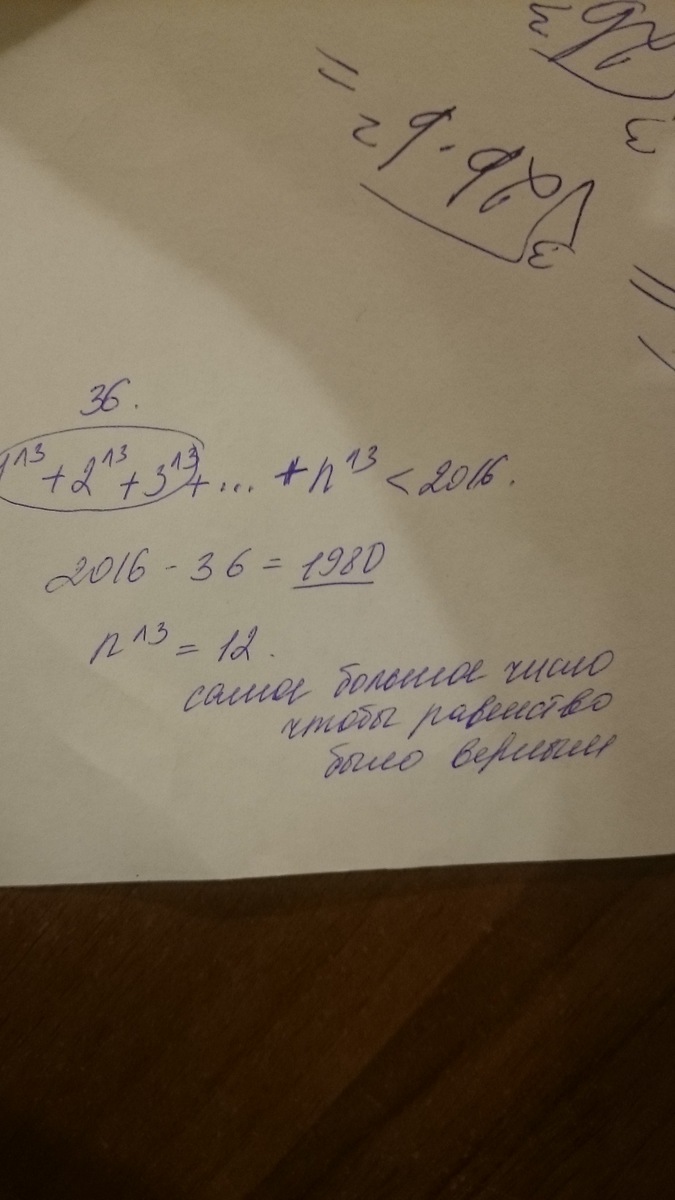 36.
1^13 + 2^13 + 3^13 + ... + n^13 < 2016.
2016 - 36 = 1980
n^13 = 12.
самое большое число
чтобы равенство
было верным